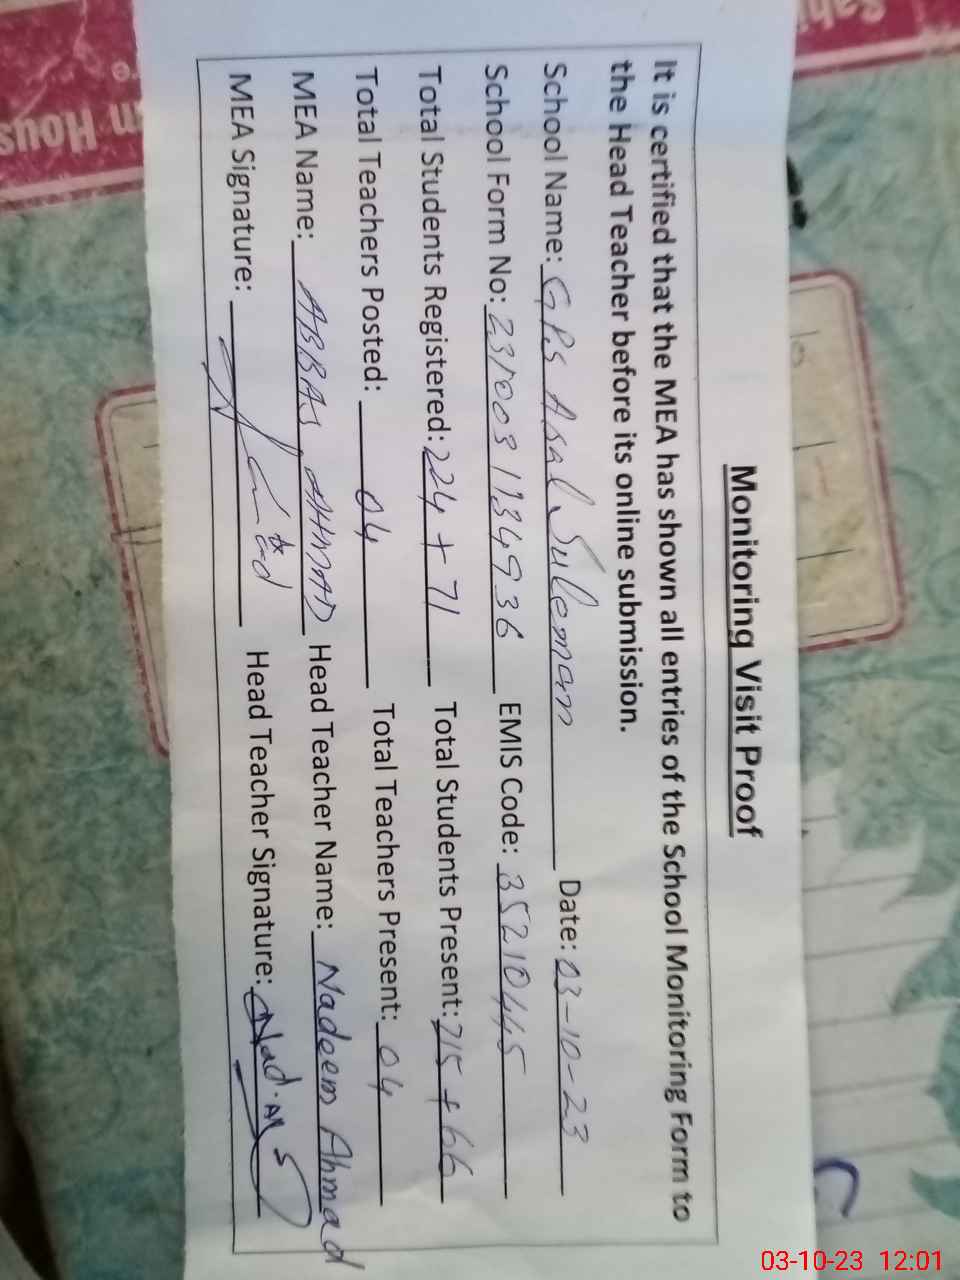 Monitoring Visit Proof
It is certified that the MEA has shown all entries of the School Monitoring Form to
the Head Teacher before its online submission.
School Name: GPS Asal Suleman Date: 03-10-23
School Form No: 231003134936 EMIS Code: 35210445
Total Students Registered: 224 + 71 Total Students Present: 215 + 66
Total Teachers Posted: 04 Total Teachers Present: 04
MEA Name: ABBAS AHMAD Head Teacher Name: Nadeem Ahmad
MEA Signature: Head Teacher Signature:
03-10-23 12:01